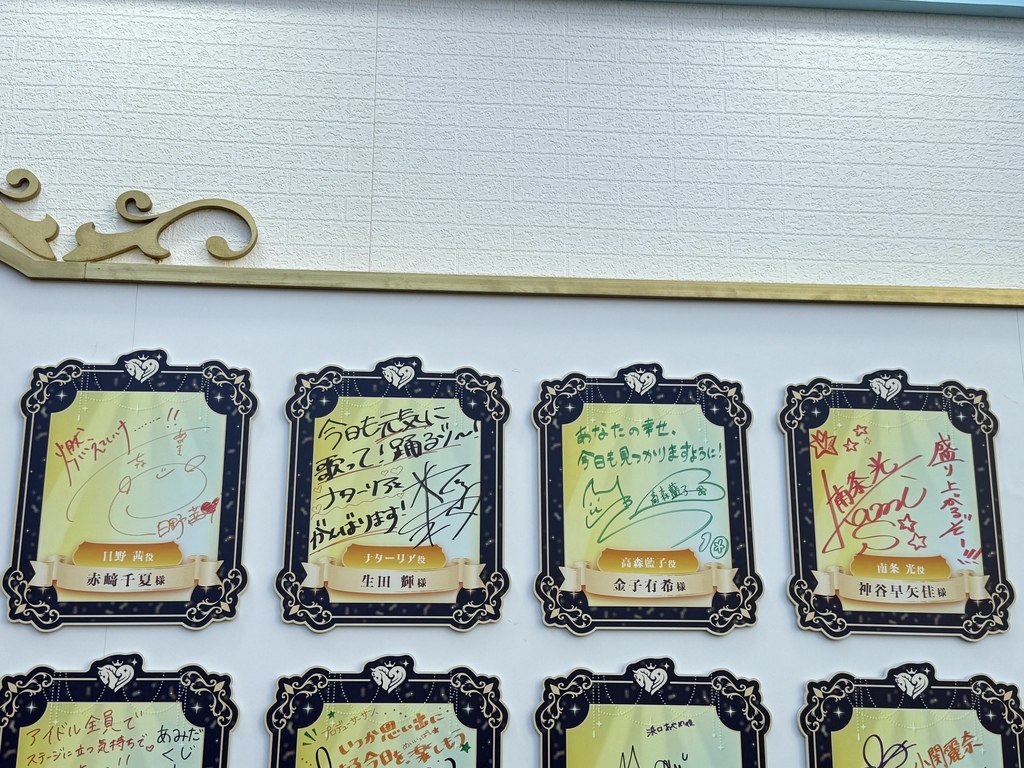 燃
えていけ……!!
日野茜
日野 茜役
赤﨑千夏様
今日も元気に
歌って!踊るゾ〜!
ナターリア
がんばります!
ナターリア役
生田 輝様
あなたの幸せ。
今日も見つかりますように!
高森藍子
高森藍子役
金子有希様
盛り上がるぞー!!!
南条光
南条 光役
神谷早矢佳様
アイドル全員で
ステージに立つ気持ちで
あみだ
くじ
プロデューサーさん
いつか思い出に
なる今日を楽しもう
浜口あやめ役
小関麗奈